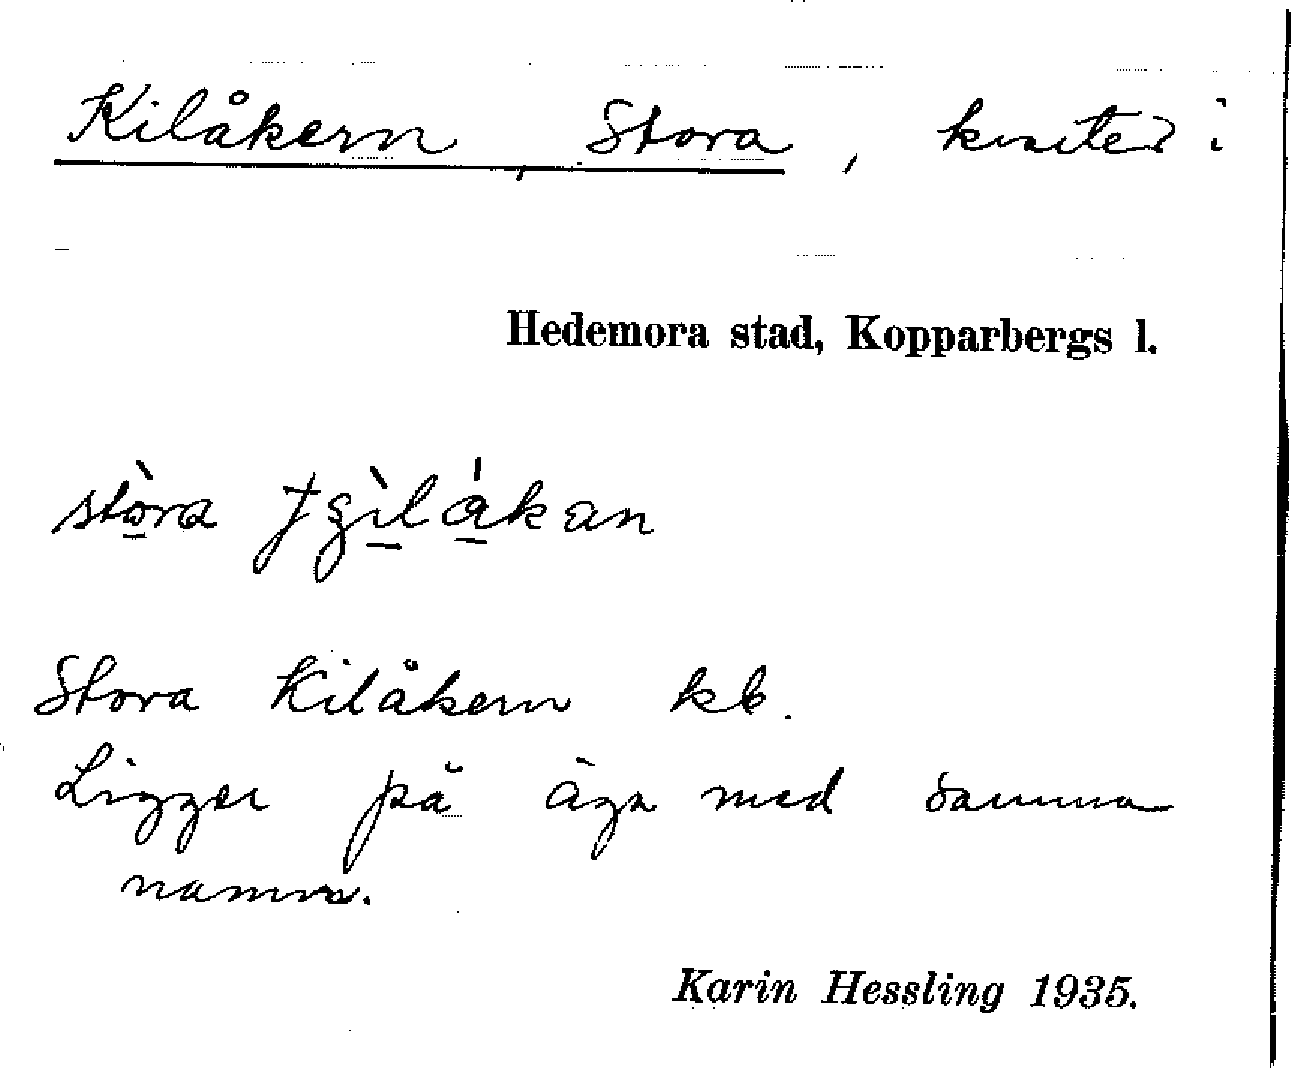 Kilåkern, Stora, kvarter i
Hedemora stad, Kopparbergs l.
stora
Stora Kilåkern kb.
Ligger på äga med samma
namn.
Karin Hessling 1935.